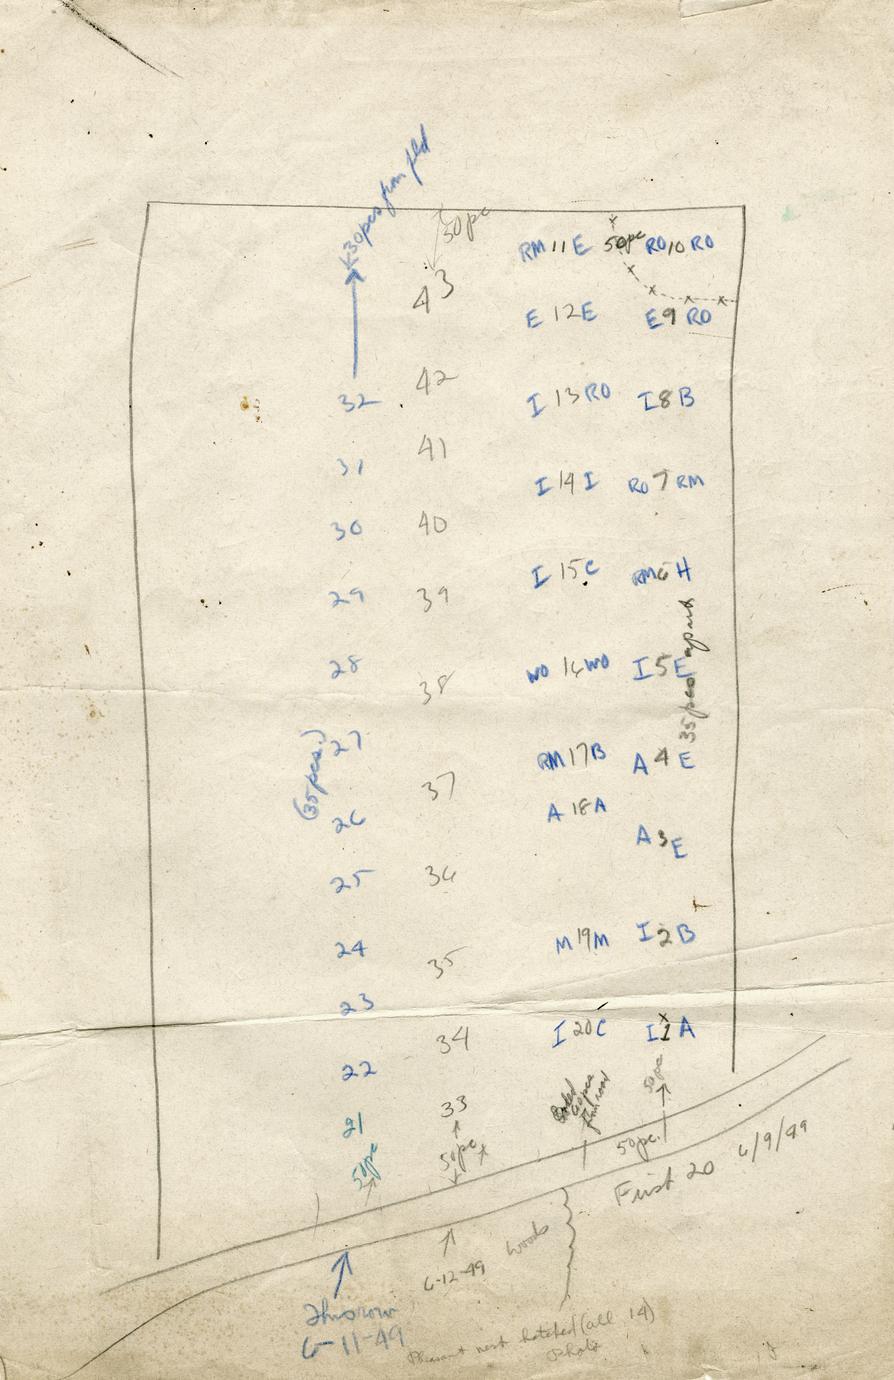 30 pces from fld
50 pc
RM 11 E
50 pc
RO 10 RO
43
E 12 E
E 9 RO
42
32
I 13 RO
I 8 B
41
31
I 14 I
RO 7 RM
40
30
I 15 C
RM 6 H
39
29
35 pces apart
28
38
WO 16 WO
I 5 E
27
(35 pces.)
37
RM 17 B
A 4 E
26
A 18 A
A 3 E
25
36
24
35
M 19 M
I 2 B
23
34
I 20 C
I 1 A
22
33
50 pc
21
50 pc
50 pc
50 pc.
First 20 6/9/49
Woods
6-12-49
This row
6-11-49
Pheasant nest hatched (all 14)
Photo